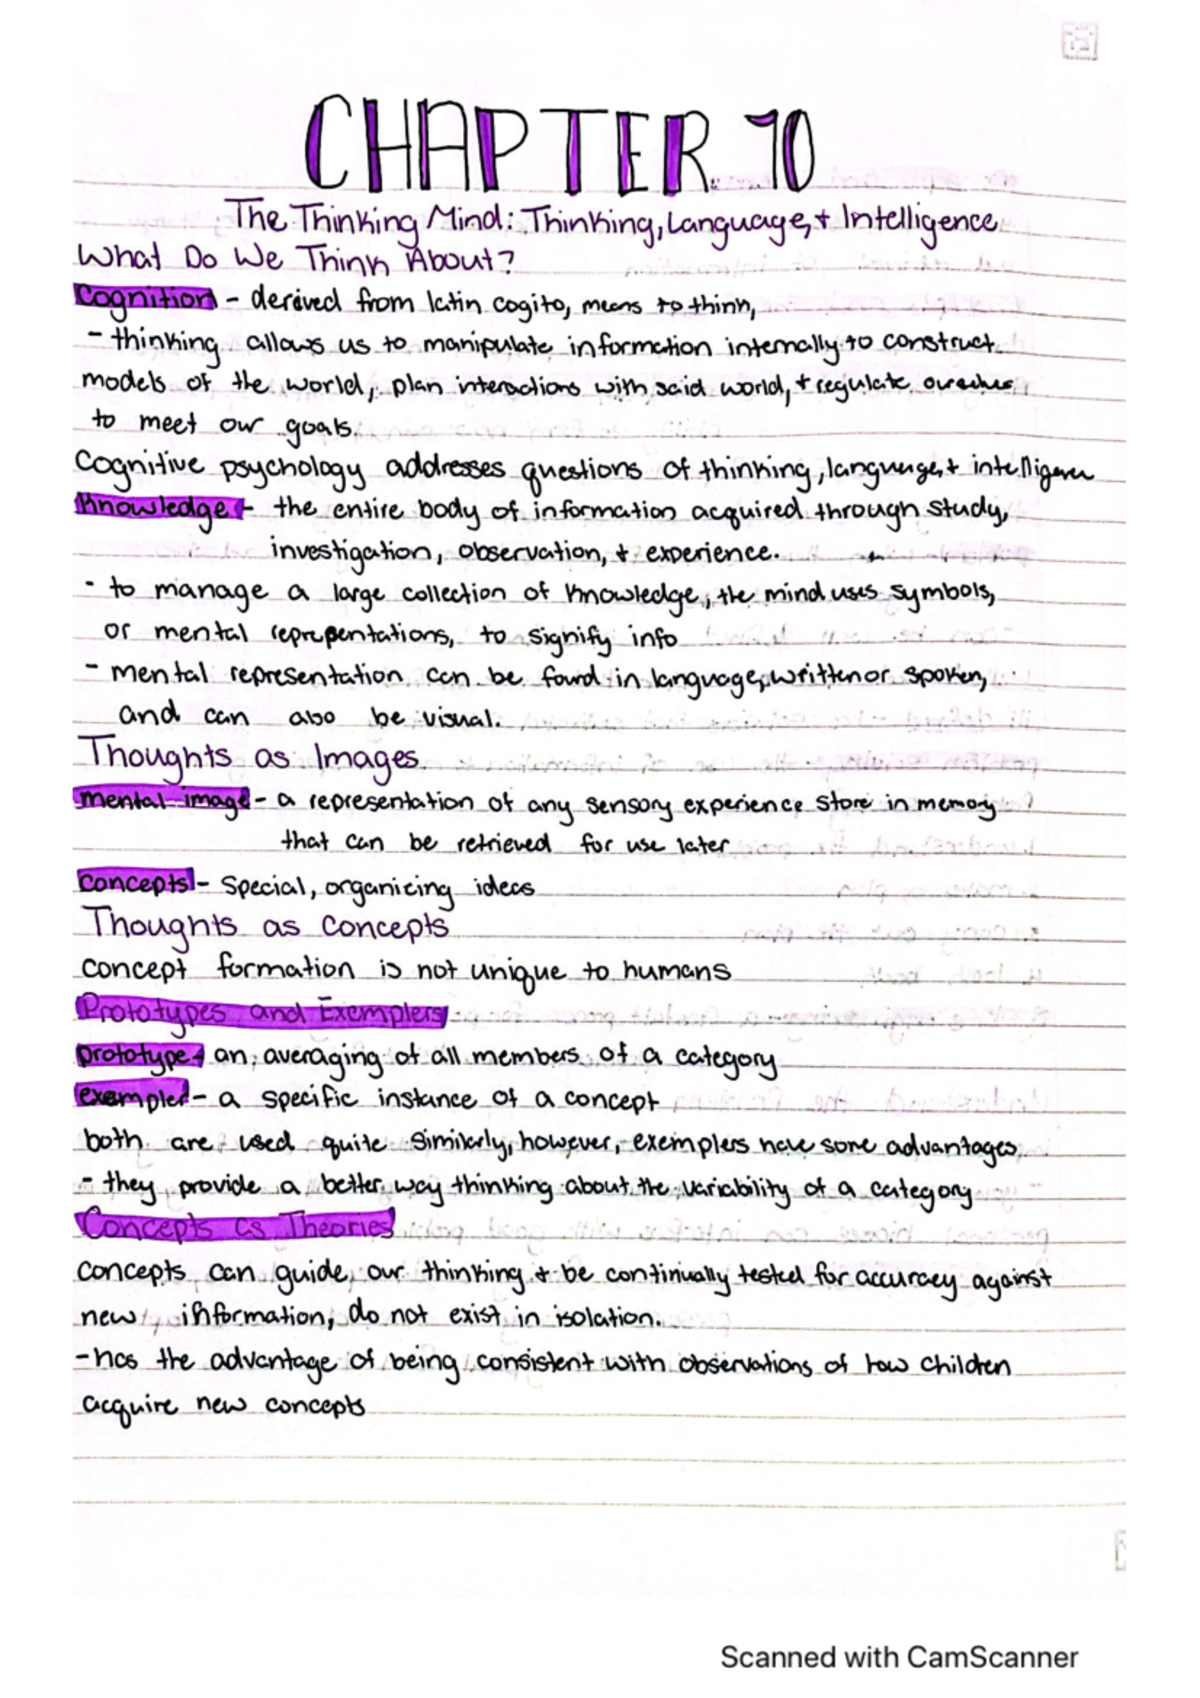 CHAPTER 10
The Thinking Mind: Thinking, Language, + Intelligence
What Do We Think About?
Cognition - derived from latin cogito, means to think,
- thinking allows us to manipulate information internally to construct
models of the world, plan interactions with said world, + regulate ourselves
to meet our goals.
Cognitive psychology addresses questions of thinking, language, + intelligence
Knowledge - the entire body of information acquired through study,
investigation, observation, + experience.
- to manage a large collection of knowledge, the mind uses symbols,
or mental representations, to signify info
- mental representation can be found in language, written or spoken,
and can also be visual.
Thoughts as Images
mental image - a representation of any sensory experience store in memory
that can be retrieved for use later
Concepts - special, organizing ideas
Thoughts as Concepts
concept formation is not unique to humans
Prototypes and Exemplers
prototype - an averaging of all members of a category
exempler - a specific instance of a concept
both are used quite similarly, however, exemplers have some advantages
- they provide a better way thinking about the variability of a category
Concepts as Theories
concepts can guide our thinking + be continually tested for accuracy against
new information, do not exist in isolation.
- has the advantage of being consistent with observations of how children
acquire new concepts
Scanned with CamScanner